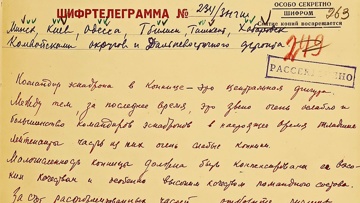 ОСОБО СЕКРЕТНО
ШИФРОМ
Снятие копий воспрещается
263
ШИФРТЕЛЕГРАММА №
Минск, Киев, Одесса, Тбилиси, Ташкент, Хабаровск
Командующим округов и Дальневосточного фронта
РАССЕКРЕЧЕНО
Командир эскадрона в Коннице - это центральная фигура.
Между тем, за последнее время, это звено очень ослабло и
большинство командиров эскадронов в настоящее время младшие
лейтенанты часть из них очень слабые конники.
Малочисленная конница должна быть компенсирована ее высо-
ким качеством и особенно высоким качеством командного состава.
За счет расформированных частей